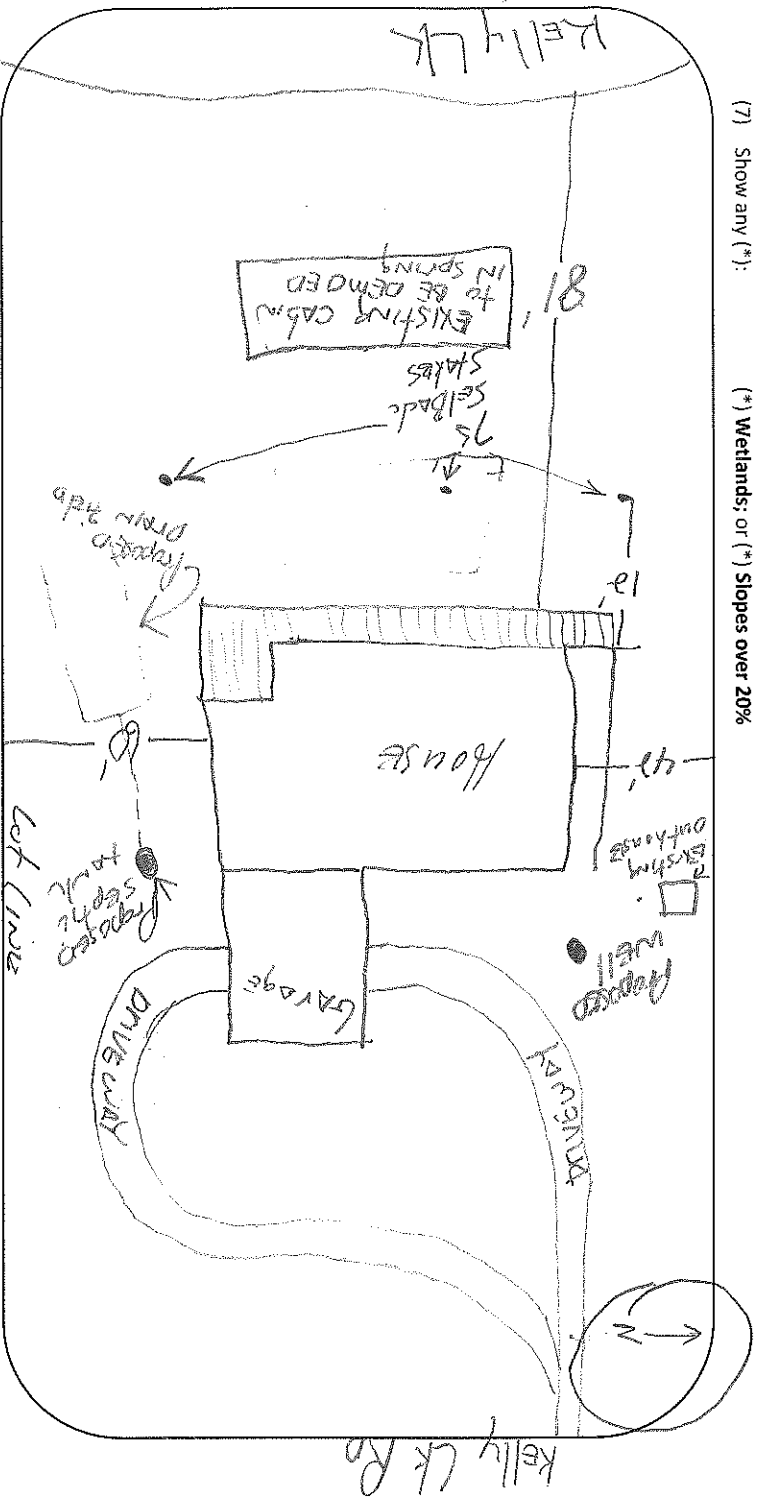 (7) Show any (*):
(*) Wetlands; or (*) Slopes over 20%
Kelly LK
EXISTING CABIN
TO BE DEMOED
IN SPRING
81'
75'
SetBack
Stakes
12'
Proposed
Drain Field
House
42'
Existing
outhouse
Proposed
septic
tank
Lot Line
Proposed
WEll
Garage
DRIVEWAY
DRIVEWAY
N
Kelly Lk RD